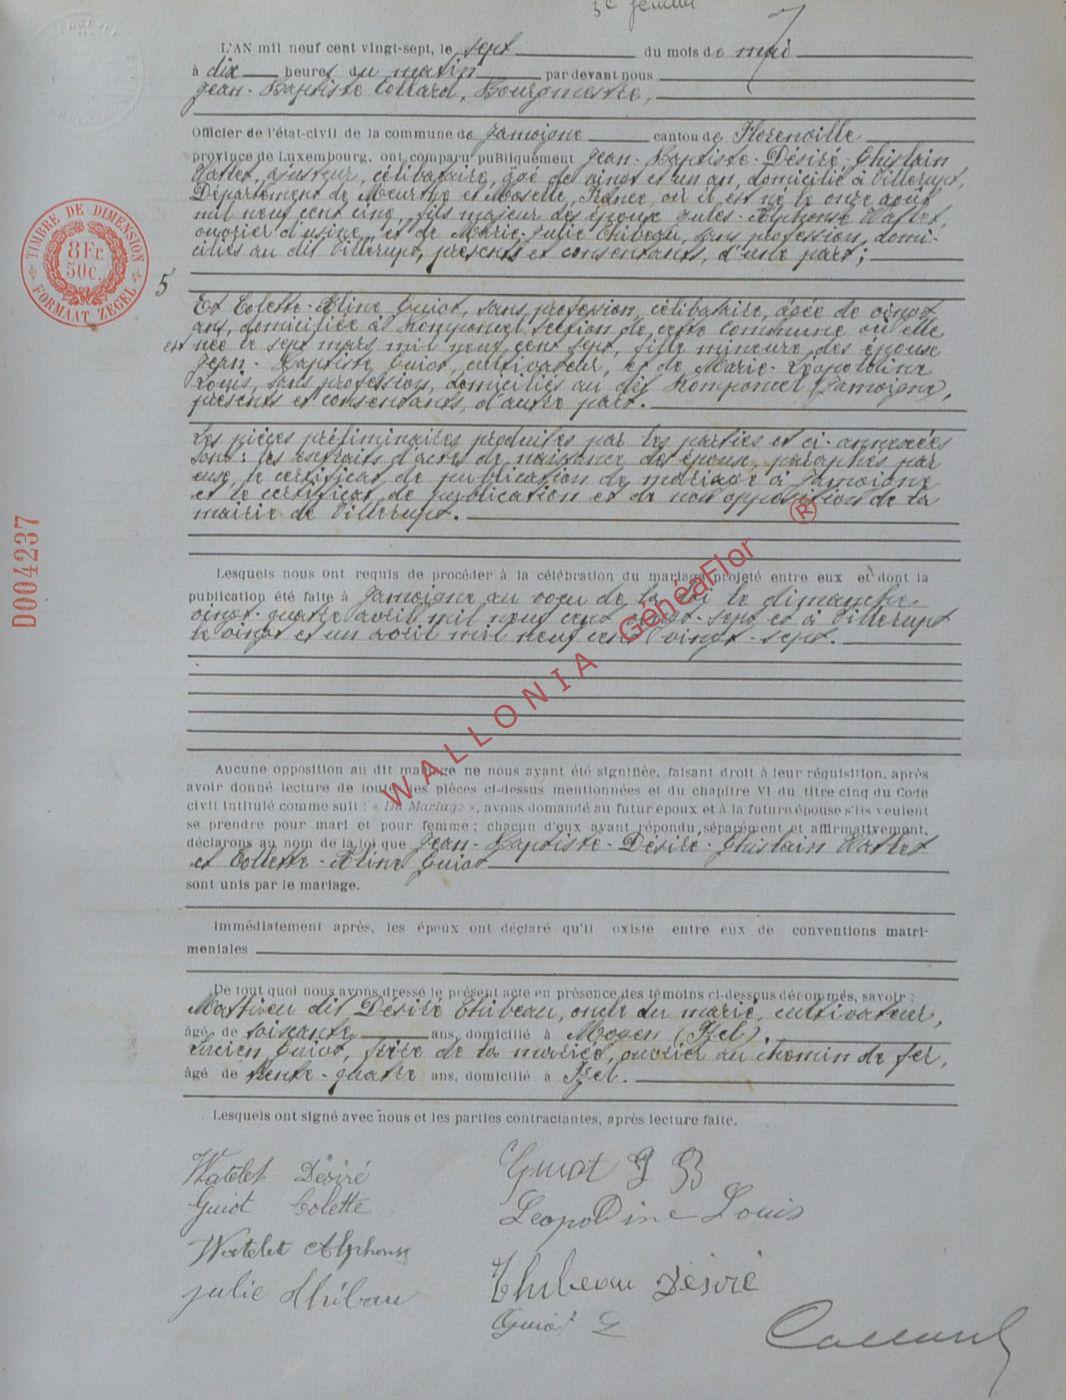 3e feuillet
7
L'AN mil neuf cent vingt-sept, le sept du mois de mai
à dix heures du matin par devant nous
Jean-Baptiste Collard, Bourgmestre,
Officier de l'état-civil de la commune de Jamoigne canton de Florenville
province de Luxembourg, ont comparu publiquement Jean-Baptiste-Désiré-Ghislain
Watlet, ajusteur, célibataire, âgé de vingt et un an, domicilié à Villerupt,
Département de Meurthe et Moselle, France, où il est né le onze août
mil neuf cent cinq, fils majeur des époux Jules-Alphonse Watlet,
ouvrier d'usine, et de Marie-Julie Thibeau, sans profession, domi-
ciliés au dit Villerupt, présents et consentants, d'une part;
5
Et Colette-Aline Guiot, sans profession, célibataire, âgée de vingt
ans, domiciliée à Romponcel section de cette commune où elle
est née le sept mars mil neuf cent sept, fille mineure des époux
Jean-Baptiste Guiot, cultivateur, et de Marie-Léopoldine
Louis, sans profession, domiciliés au dit Romponcel (Jamoigne),
présents et consentants, d'autre part.
Les pièces préliminaires produites par les parties et ci-annexées
sont: les extraits d'actes de naissance des époux, paraphés par
eux, le certificat de publication de mariage à Jamoigne
et le certificat de publication et de non opposition de la
mairie de Villerupt.
Lesquels nous ont requis de procéder à la célébration du mariage projeté entre eux et dont la
publication été faite à Jamoigne au voeu de la loi le dimanche
vingt-quatre avril mil neuf cent vingt-sept et à Villerupt
le vingt et un avril mil neuf cent vingt-sept.
Aucune opposition au dit mariage ne nous ayant été signifiée, faisant droit à leur réquisition, après
avoir donné lecture de toutes les pièces ci-dessus mentionnées et du chapitre VI du titre cinq du Code
civil intitulé comme suit : « Du Mariage », avons demandé au futur époux et à la future épouse s'ils veulent
se prendre pour mari et pour femme ; chacun d'eux ayant répondu séparément et affirmativement,
déclarons au nom de la loi que Jean-Baptiste-Désiré-Ghislain Watlet
et Collette-Aline Guiot
sont unis par le mariage.
Immédiatement après, les époux ont déclaré qu'il existe entre eux de conventions matri-
moniales
De tout quoi nous avons dressé le présent acte en présence des témoins ci-dessous dénommés, savoir :
Mathieu dit Désiré Thibeau, oncle du marié, cultivateur,
âgé de soixante ans, domicilié à Moyen (Izel),
Lucien Guiot, frère de la mariée, ouvrier au chemin de fer,
âgé de trente-quatre ans, domicilié à Izel.
Lesquels ont signé avec nous et les parties contractantes, après lecture faite.
Watelet Désiré
Guiot Colette
Watelet Alphonse
Julie Thibau
Guiot J B
Leopoldine Louis
Thibeau Désiré
Guiot L
Collard
TIMBRE DE DIMENSION
8 Fr.
50 c.
FORMAAT ZEGEL
D004237
WALLONIA GénéaFlor ®